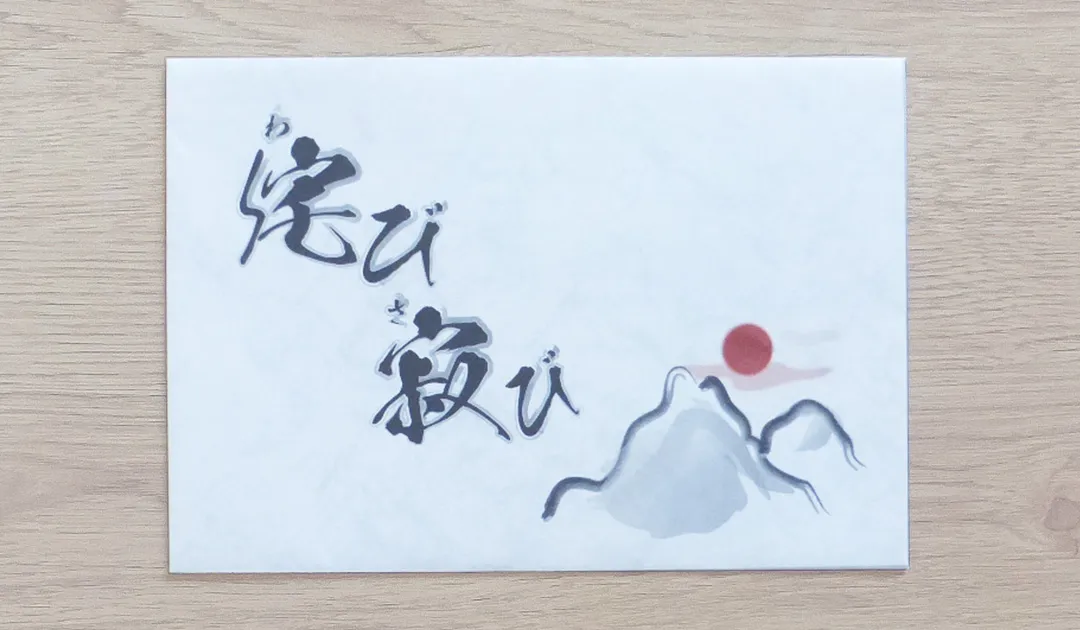 わ
侘び
さ
寂び